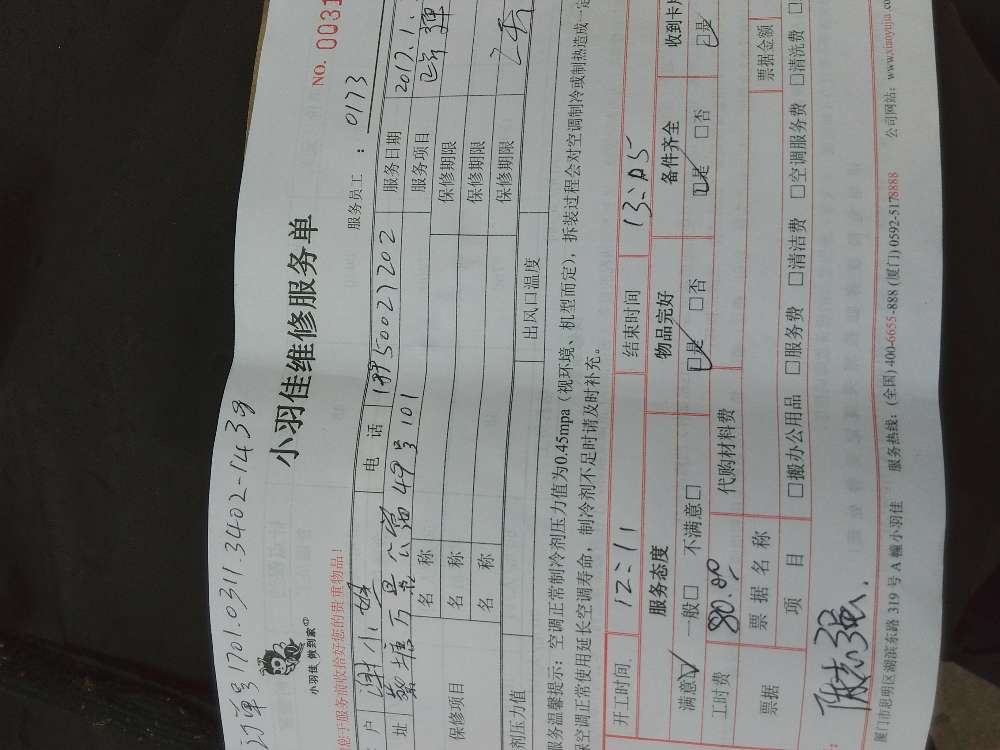 订单号1701.0311.3402-1439
小羽佳 做到家
小羽佳维修服务单
NO. 0031
意于服务前收拾好您的贵重物品！
服务员工：0173
户
电 话
服务日期 2017.1.
址
万景公寓49号101
服务项目
保修项目
名 称
保修期限
名 称
保修期限
名 称
保修期限
剂压力值
出风口温度
服务温馨提示：空调正常制冷剂压力值为0.45mpa（视环境、机型而定），拆装过程会对空调制冷或制热造成一定
保空调正常使用延长空调寿命，制冷剂不足时请及时补充。
开工时间 12:11 结束时间
服务态度 物品完好 备件齐全 收到卡片
满意☑ 一般□ 不满意□ ☑是 □否 ☑是 □否 ☑是
工时费 80.00 代购材料费
票据 票据名称 票据金额
项 目 □搬办公用品 □服务费 □清洁费 □空调服务费 □清洗费 □
厦门市思明区湖滨东路 319 号 A 幢小羽佳 服务热线：(全国) 400-6655-888 (厦门) 0592-5178888 公司网站：www.xiaoyujia.co